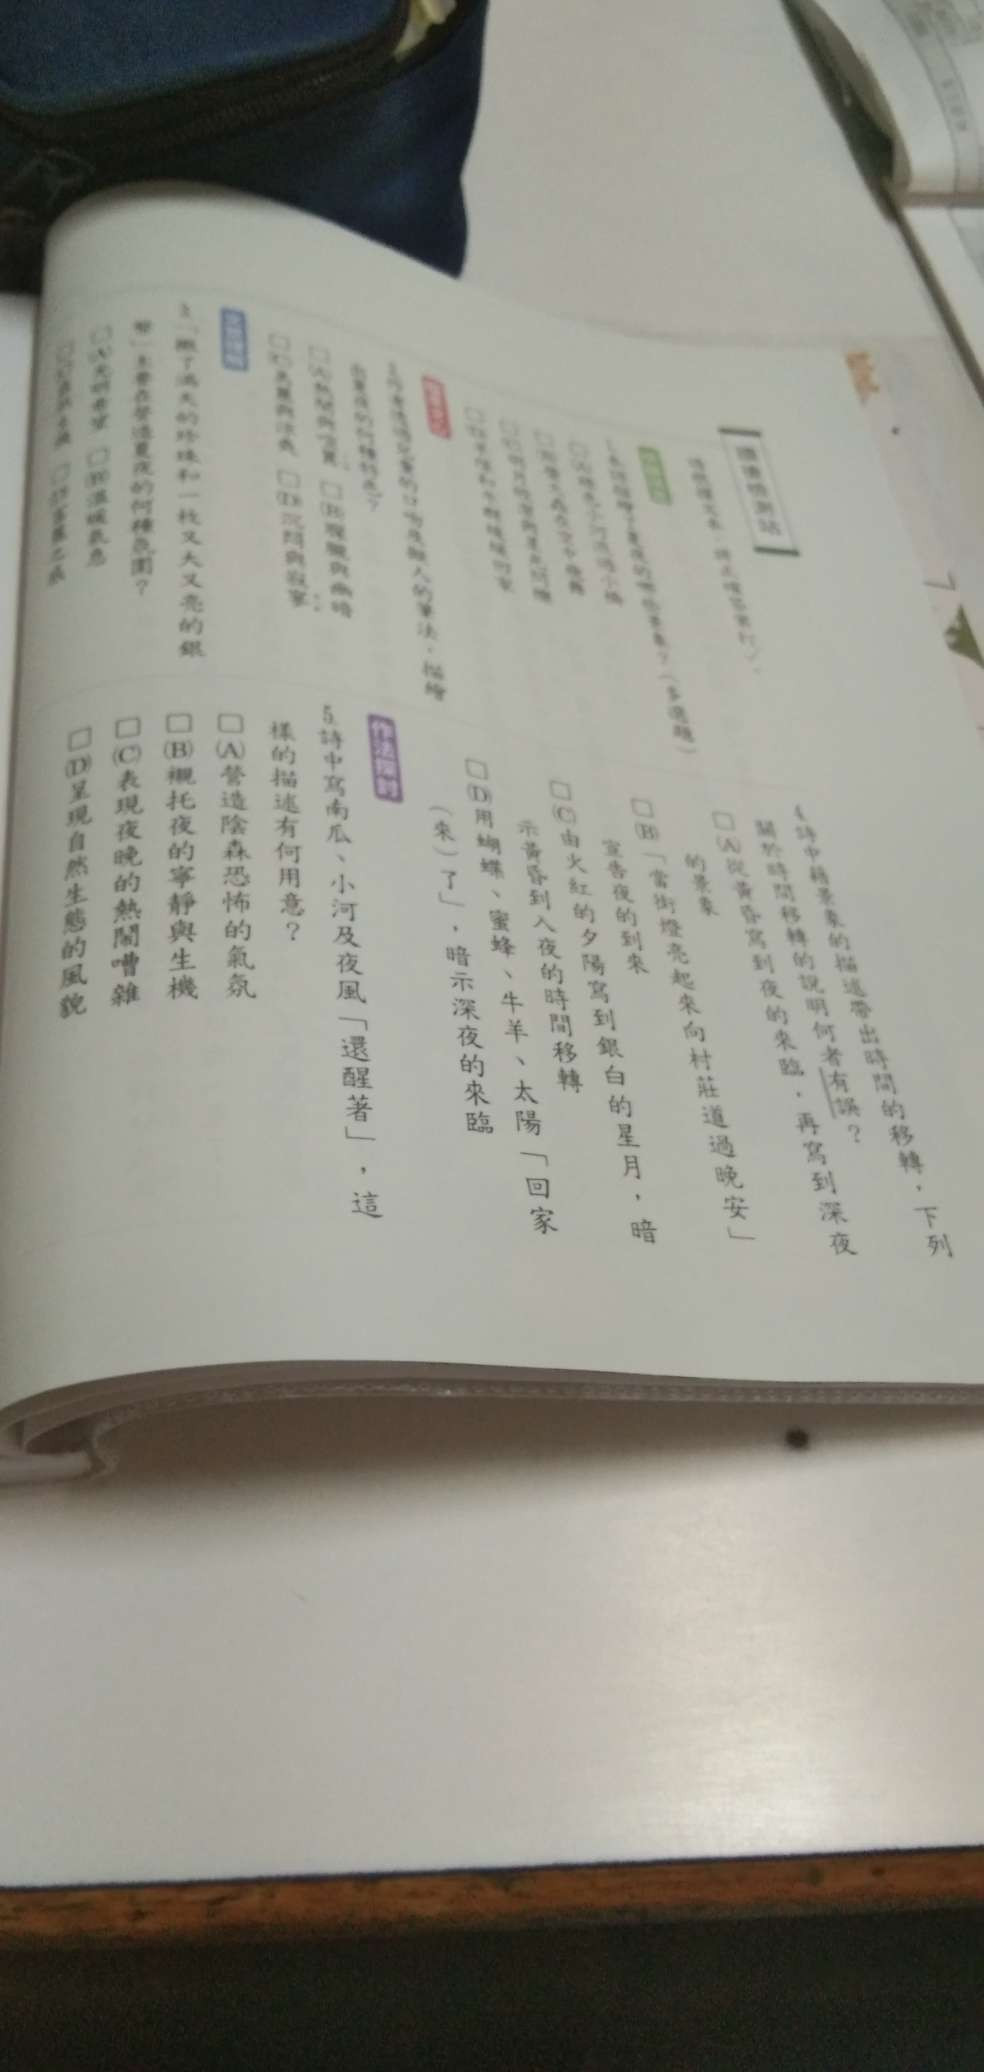 讀後檢測站
請熟讀文本，將正確答案打ˇ。
1.本詩描繪了夏夜的哪些景象？（多選題）
□(A)綠色小河流過小橋
□(B)螢火蟲在空中飛舞
□(C)明月皎潔與星光閃爍
□(D)羊隊和牛群緩緩回家
2.作者透過兒童的口吻及擬人的筆法，描繪
出夏夜的何種特色？
□(A)熱鬧與喧囂 □(B)朦朧與幽暗
□(C)美麗與活潑 □(D)沉悶與寂寥
3.「撒了滿天的珍珠和一枚又大又亮的銀
幣」主要在營造夏夜的何種氛圍？
□(A)光明希望 □(B)溫暖氣息
4.詩中藉景象的描述帶出時間的移轉，下列
關於時間移轉的說明何者有誤？
□(A)從黃昏寫到夜的來臨，再寫到深夜
的景象
□(B)「當街燈亮起來向村莊道過晚安」
宣告夜的到來
□(C)由火紅的夕陽寫到銀白的星月，暗
示黃昏到入夜的時間移轉
□(D)用蝴蝶、蜜蜂、牛羊、太陽「回家
（來）了」，暗示深夜的來臨
作法探討
5.詩中寫南瓜、小河及夜風「還醒著」，這
樣的描述有何用意？
□(A)營造陰森恐怖的氣氛
□(B)襯托夜的寧靜與生機
□(C)表現夜晚的熱鬧嘈雜
□(D)呈現自然生態的風貌